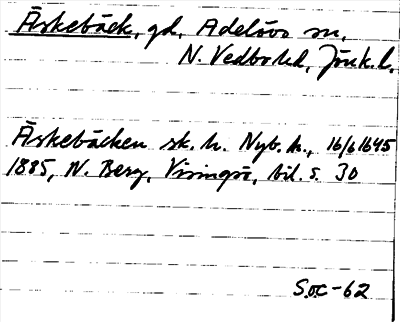 Åskebäck, gd, Adelövs sn,
N. Vedbo hd, Jönk. l.
Åskebäcken sk. h. Nyb. h., 16/6 1645
1885, N. Berg, Visingsö, bil. s. 30
SOC-62